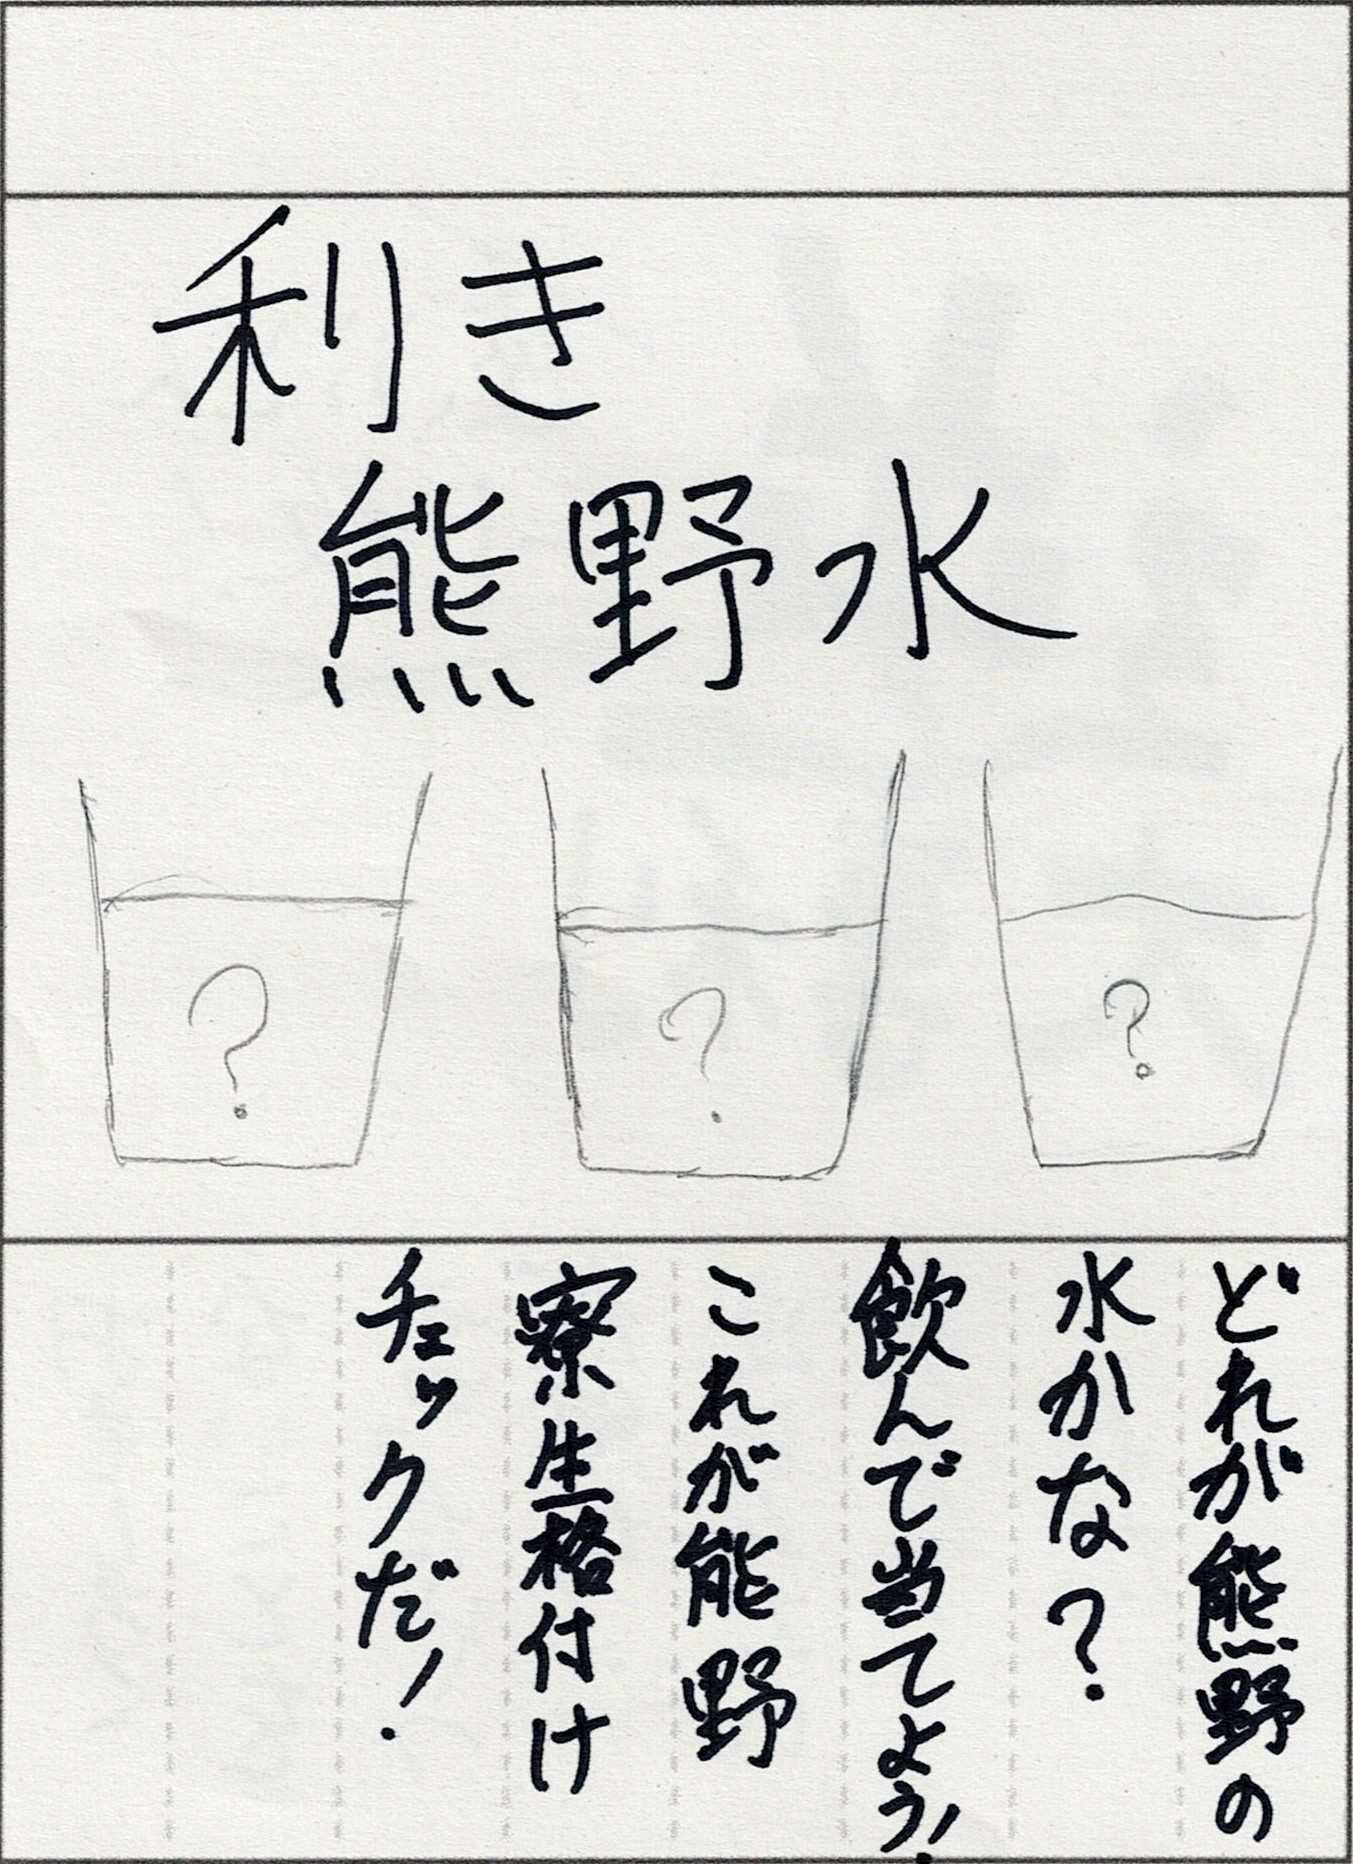 利き
熊野水
?
?
?
どれが熊野の
水かな?
飲んで当てよう!
これが能野
寮生格付け
チェックだ!